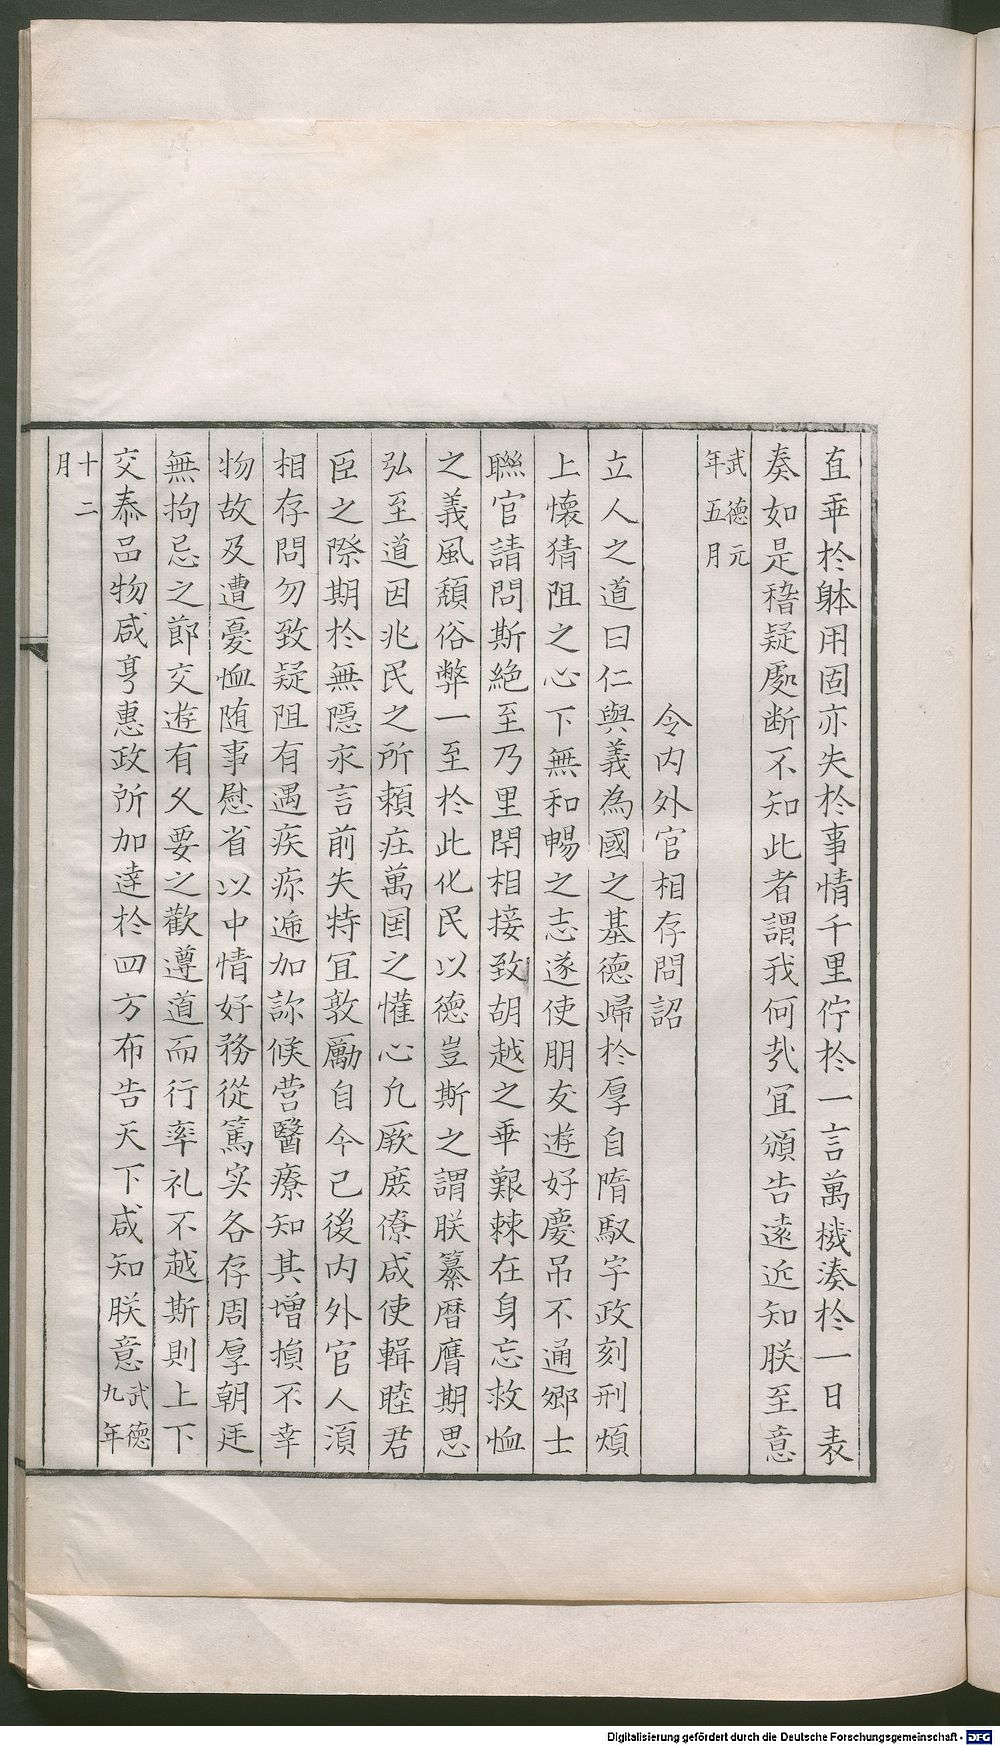 直乖於躰用固亦失於事情千里佇於一言萬機湊於一日表
奏如是稽疑處断不知此者謂我何㢤宜頒告遠近知朕至意
武德元
年五月
令内外官相存問詔
立人之道曰仁與義為國之基德㱕於厚自隋馭宇政刻刑煩
上懷猜阻之心下無和暢之志遂使朋友遊好慶吊不通鄉士
聯官請問斯絶至乃里閈相接致胡越之乖艱棘在身忘救恤
之義風頹俗弊一至於此化民以德豈斯之謂朕纂曆膺期思
弘至道因兆民之所賴庄萬囯之懽心凢厥庻僚咸使輯睦君
臣之際期於無隱永言前失特宜敦勵自今已後内外官人湏
相存問勿致疑阻有遇疾㾉逓加訪候营醫療知其增損不幸
物故及遭憂恤随事慰省以中情好務從篤实各存周厚朝廷
無拘忌之節交遊有久要之歡遵道而行率礼不越斯則上下
交泰品物咸亨惠政所加達於四方布告天下咸知朕意武德
九年
十二
月
Digitalisierung gefördert durch die Deutsche Forschungsgemeinschaft - DFG